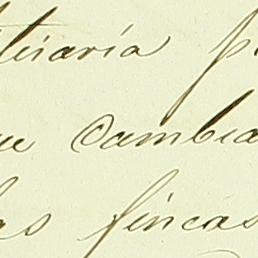 tuiaria p
ue cambia
las fincas